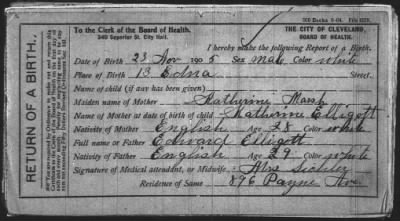 300 Books 9-04.
RETURN OF A BIRTH.
To the Clerk of the Board of Health.
THE CITY OF CLEVELAND,
340 Superior St. City Hall.
BOARD OF HEALTH.
I hereby make the following Report of a Birth.
Date of Birth 28 Nov 1905 Sex male Color white
Place of Birth 13 Edna Street.
Name of child (if any has been given)
Maiden name of Mother Katherine Marsh
Name of Mother at date of birth of child Katherine Elligott
Nativity of Mother English Age 28 Color white
Full name of Father Edward Elligott
Nativity of Father English Age 29 Color white
Signature of Medical attendant, or Midwife, Mrs
Residence of Same 896 Payne Ave